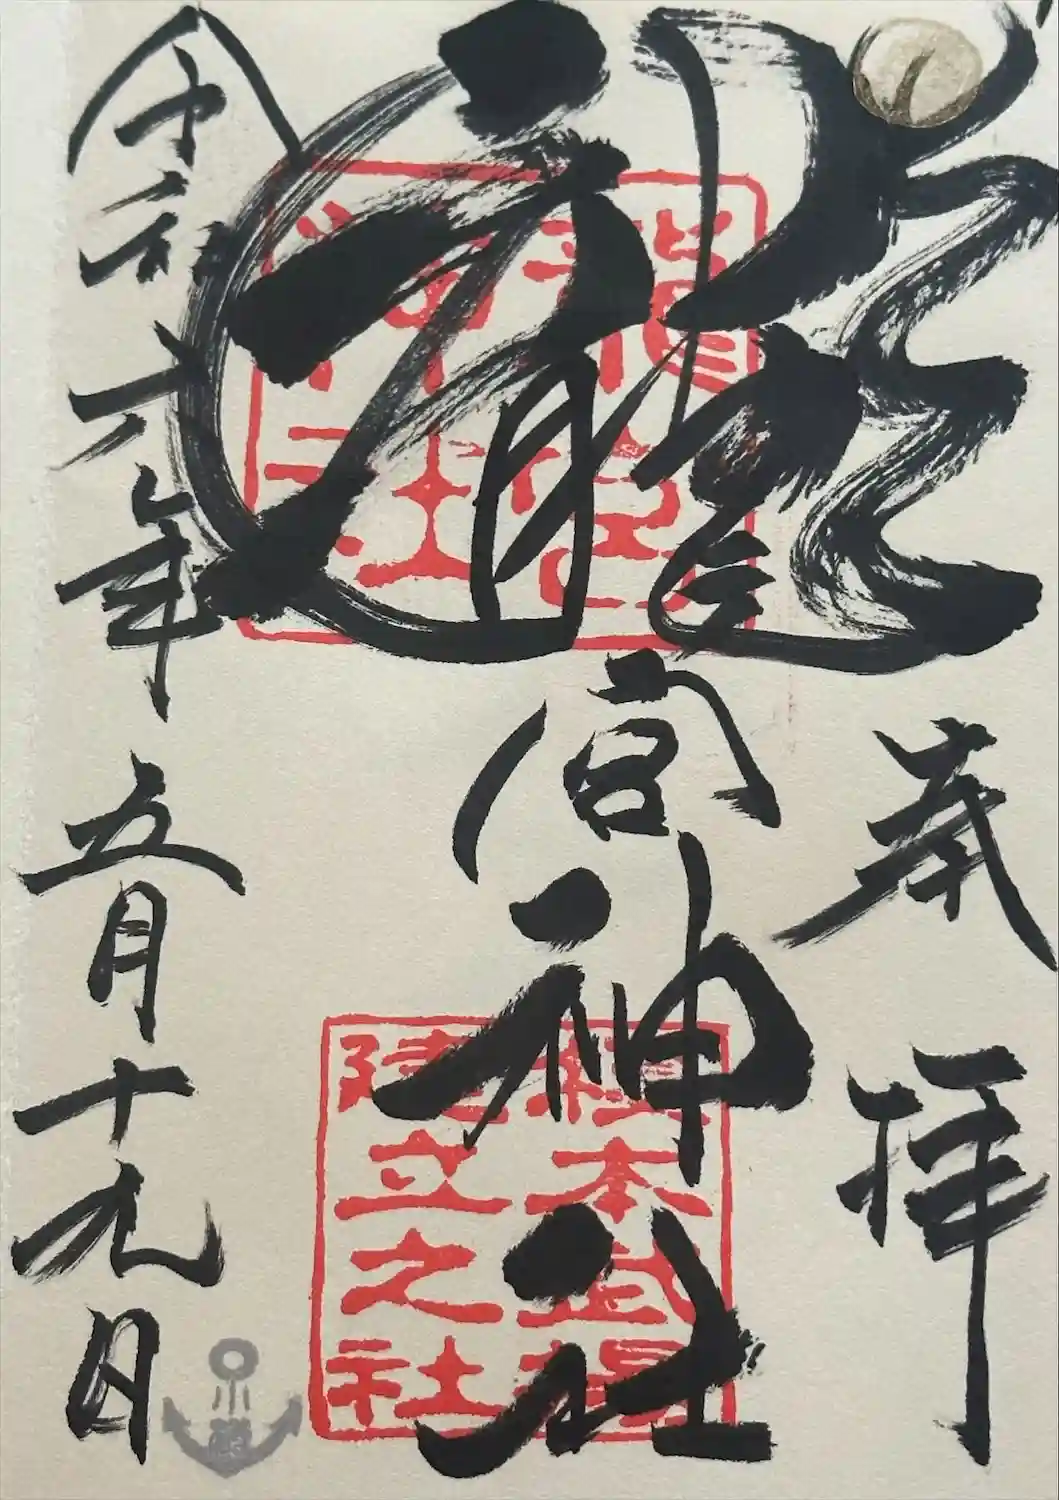 奉拝
龍宮神社
龍宮
神社
榎本武揚
建立之社
令和六年五月十九日